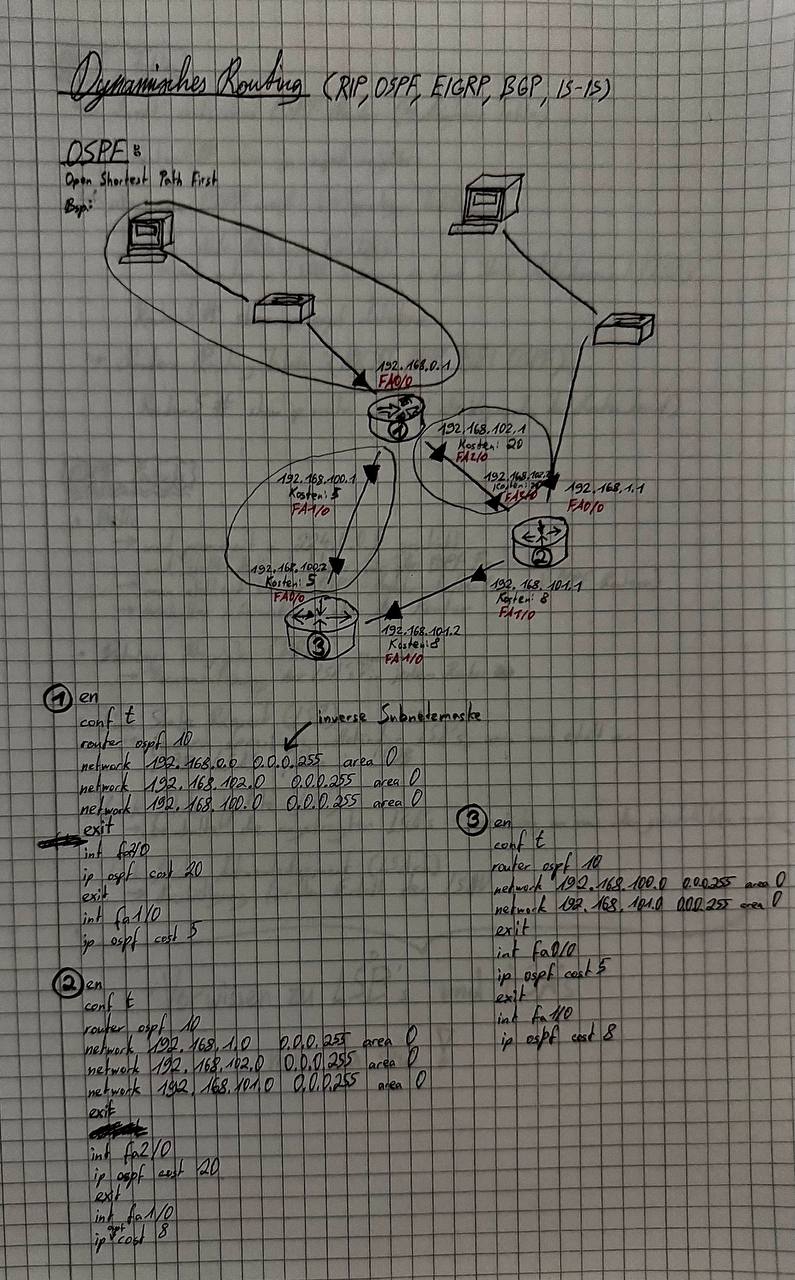 Dynamisches Routing (RIP, OSPF, EIGRP, BGP, IS-IS)
OSPF:
Open Shortest Path First
Bsp:
192.168.0.1
FA0/0
1
192.168.102.1
Kosten: 20
FA2/0
192.168.102.2
Kosten: 20
192.168.1.1
FA0/0
192.168.100.1
Kosten: 5
FA1/0
2
192.168.100.2
Kosten: 5
FA0/0
192.168.101.1
Kosten: 8
FA1/0
3
192.168.101.2
Kosten: 8
FA1/0
1 en
conf t
inverse Subnetzmaske
router ospf 10
network 192.168.0.0 0.0.0.255 area 0
network 192.168.102.0 0.0.0.255 area 0
network 192.168.100.0 0.0.0.255 area 0
exit
int fa2/0
ip ospf cost 20
exit
int fa1/0
ip ospf cost 5
2 en
conf t
router ospf 10
network 192.168.1.0 0.0.0.255 area 0
network 192.168.102.0 0.0.0.255 area 0
network 192.168.101.0 0.0.0.255 area 0
exit
int fa2/0
ip ospf cost 20
exit
int fa1/0
ip ospf cost 8
3 en
conf t
router ospf 10
network 192.168.100.0 0.0.0.255 area 0
network 192.168.101.0 0.0.0.255 area 0
exit
int fa0/0
ip ospf cost 5
exit
int fa1/0
ip ospf cost 8